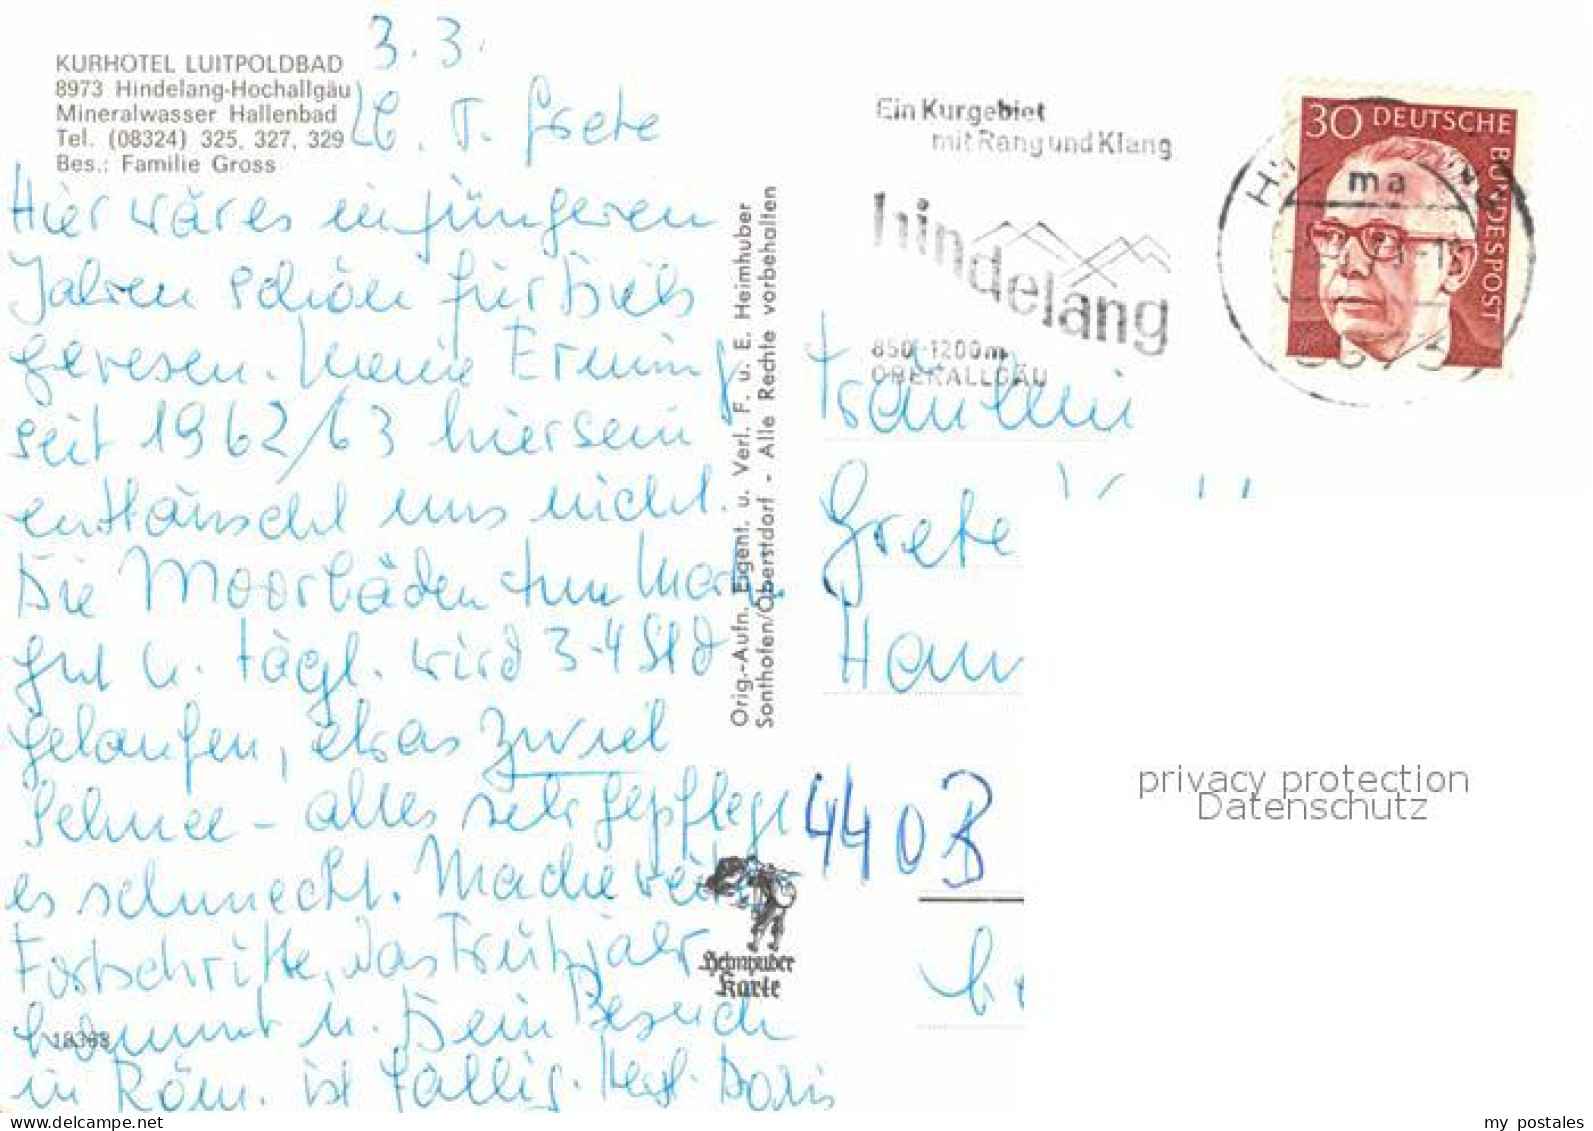 KURHOTEL LUITPOLDBAD
8973 Hindelang-Hochallgäu
Mineralwasser Hallenbad
Tel. (08324) 325, 327, 329
Bes.: Familie Gross
3.3.
Lb. T. Grete
Hier wäre es in jüngeren
Jahren schön für Dich
gewesen. Meine
seit 1962/63 hiersein
enttäuscht uns nicht.
Die Moorbäder tun
gut u. tägl. wird 3-4 Std
gelaufen, etwas zuviel
Schnee - alles sehr gepflegt
es schmeckt. Mache weiter
Fortschritte, das Frühjahr
kommt u. Dein Besuch
in Röm. ist fällig. Herzl. Doris
18368
Orig.-Aufn. Eigent. u. Verl. F. u. E. Heimhuber
Sonthofen/Oberstdorf - Alle Rechte vorbehalten
Heimhuber
Karte
Ein Kurgebiet
mit Rang und Klang
hindelang
850-1200m
OBERALLGÄU
30 DEUTSCHE BUNDESPOST
ma
Fräulein
Grete
Han
440 B
privacy protection
Datenschutz
my postales